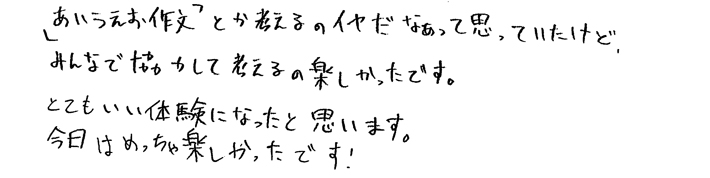 「あいうえお作文」とか考えるのイヤだなぁって思っていたけど、
みんなで協力して考えるの楽しかったです。
とてもいい体験になったと思います。
今日はめっちゃ楽しかったです!